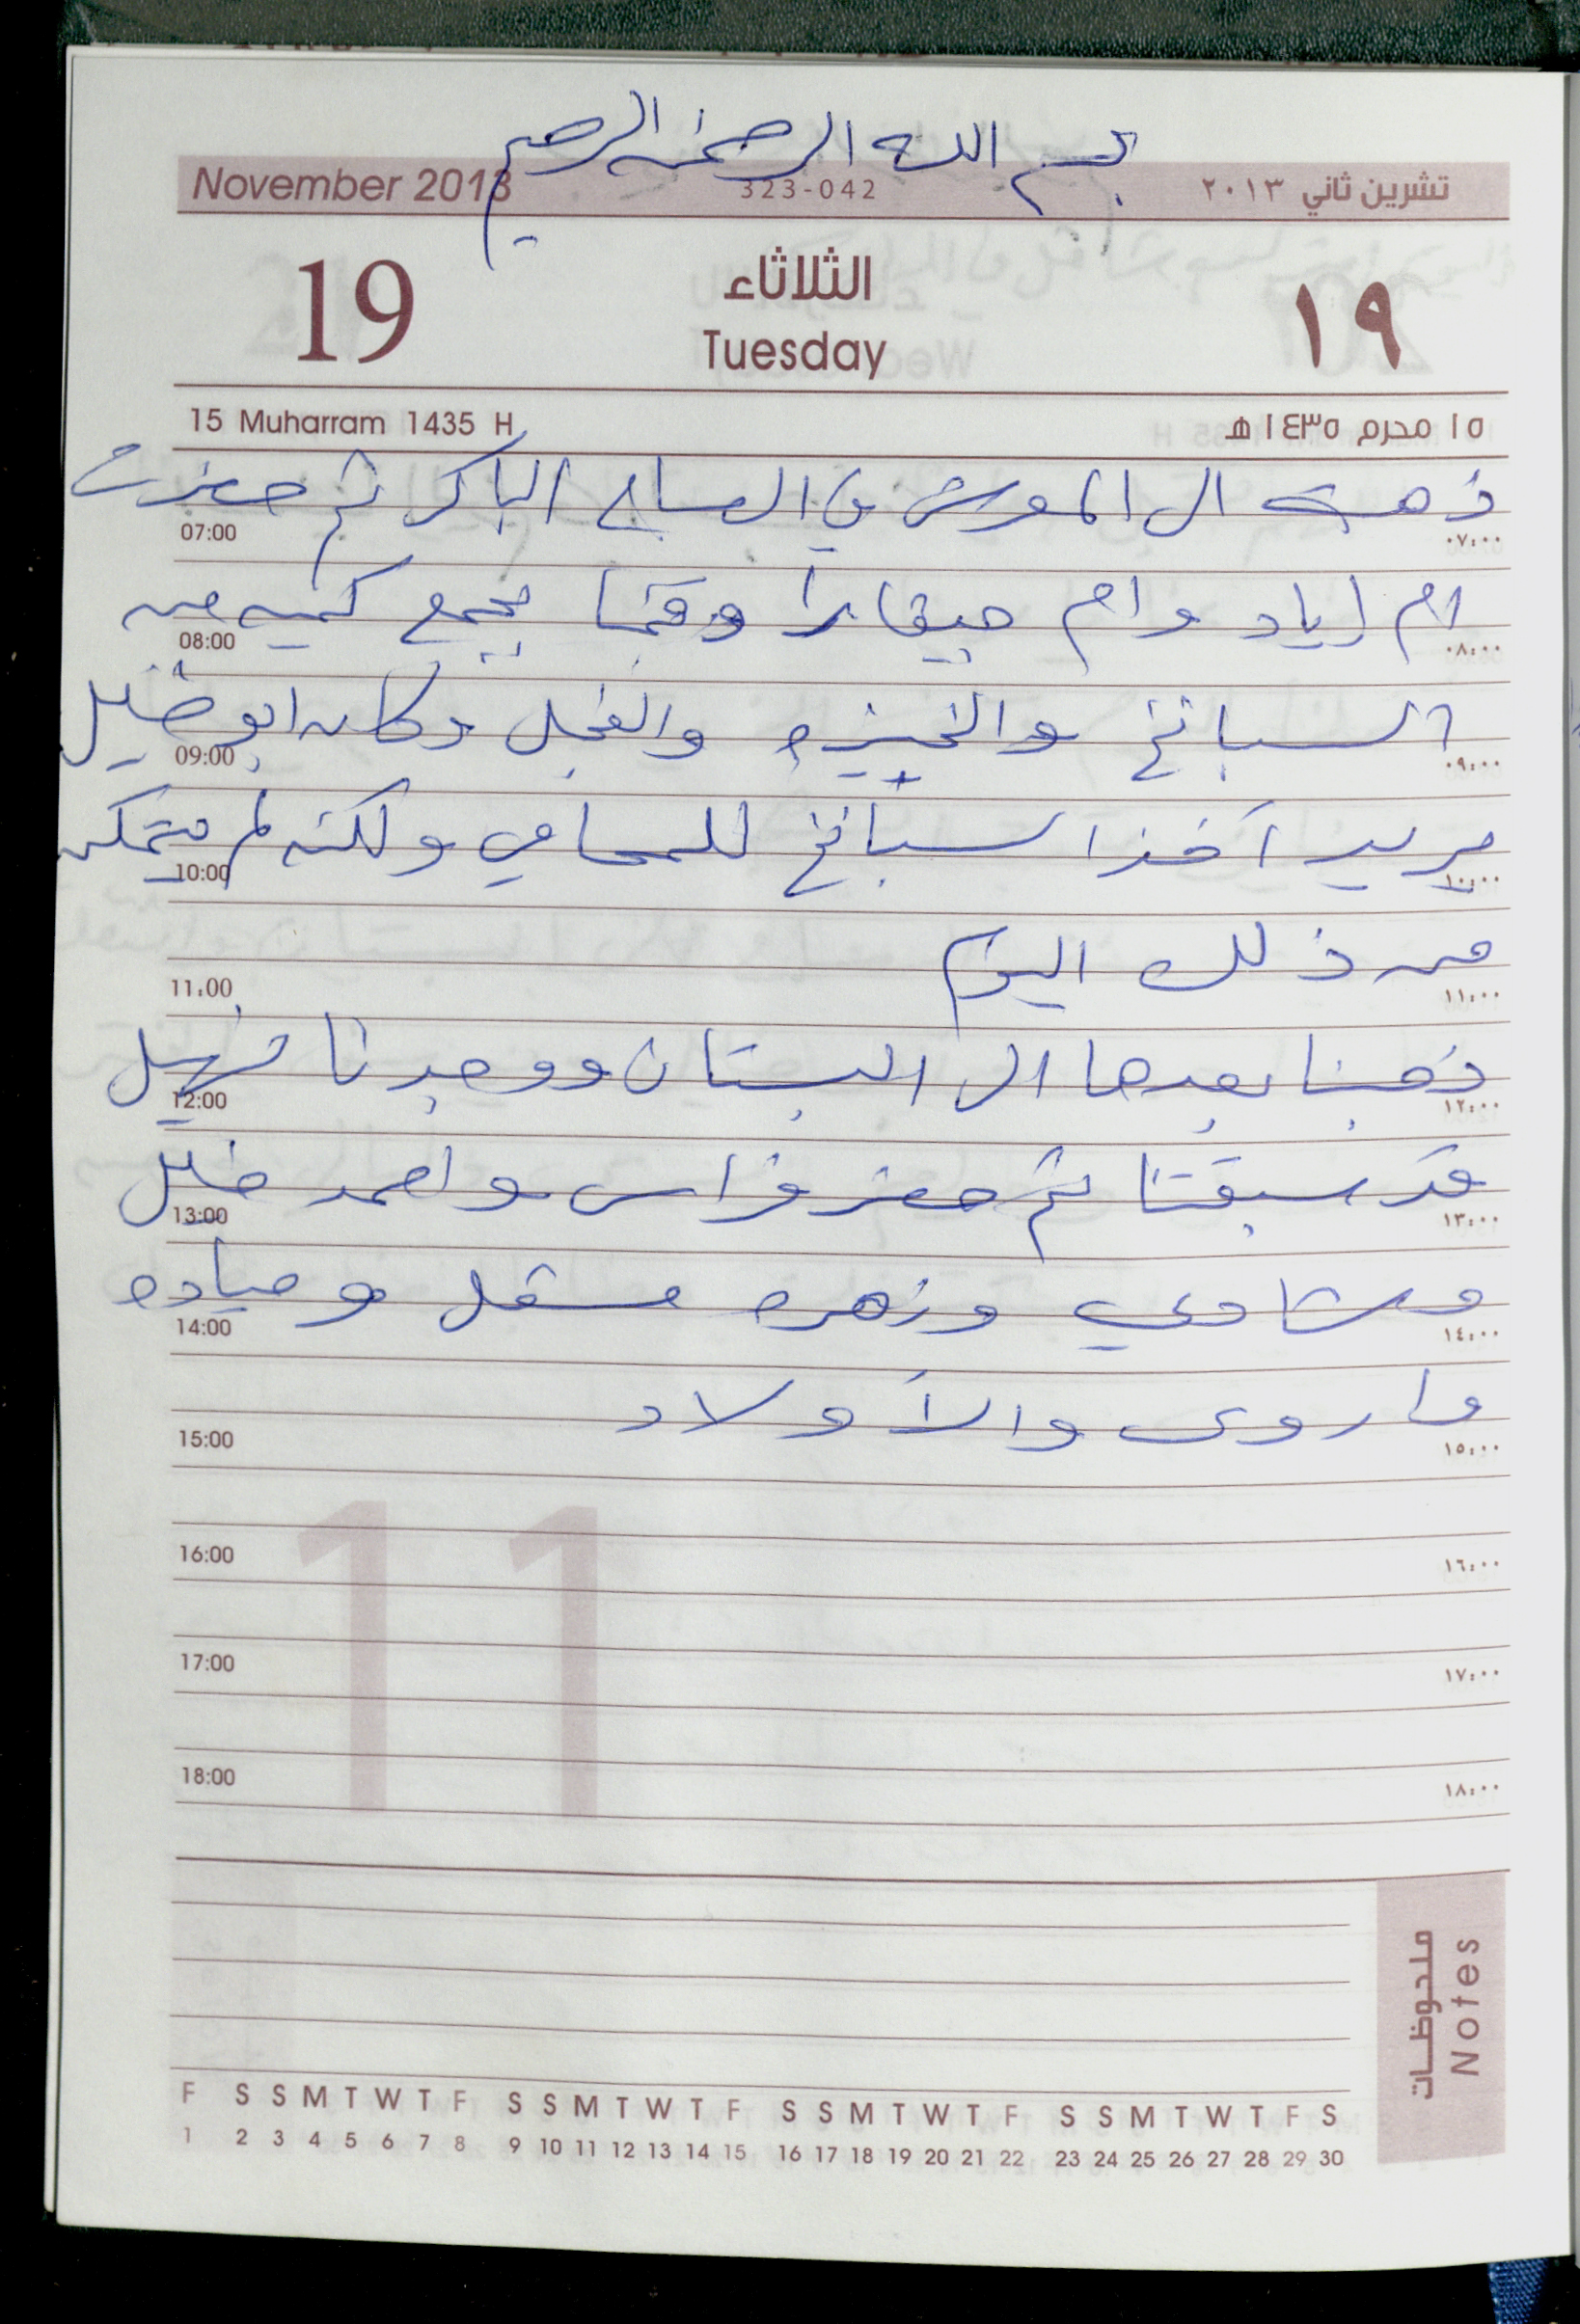 بسم الله الرحمن الرحيم
November 2013 323-042 تشرين ثاني ٢٠١٣
19 الثلاثاء ١٩
Tuesday
15 Muharram 1435 H ١٥ محرم ١٤٣٥ هـ
ذهبت الى المعرش في الصباح الباكر ثم حضرت
07:00 ٠٧:٠٠
ام اياد وام جيفارا وقمنا بجمع كميه من
08:00 ٠٨:٠٠
السبانخ والخبيزه والفجل وكان ابو خليل
09:00 ٠٩:٠٠
يريد اخذ السبانخ للمحامي ولكنه لم يتمكن
10:00 ١٠:٠٠
من ذلك اليوم
11:00 ١١:٠٠
ذهبنا بعدها الى البستان ووجدنا
12:00 ١٢:٠٠
قد سبقتنا ثم حضر فراس واحمد خليل
13:00 ١٣:٠٠
وشادي وزهره ومياده
14:00 ١٤:٠٠
واروى والأولاد
15:00 ١٥:٠٠
16:00 ١٦:٠٠
17:00 ١٧:٠٠
18:00 ١٨:٠٠
11
ملحوظات
Notes
F S S M T W T F S S M T W T F S S M T W T F S S M T W T F S
1 2 3 4 5 6 7 8 9 10 11 12 13 14 15 16 17 18 19 20 21 22 23 24 25 26 27 28 29 30